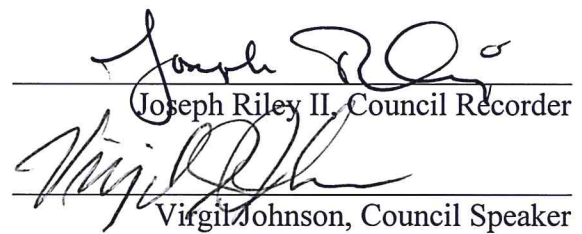 Joseph Riley
Joseph Riley II, Council Recorder
Virgil Johnson
Virgil Johnson, Council Speaker